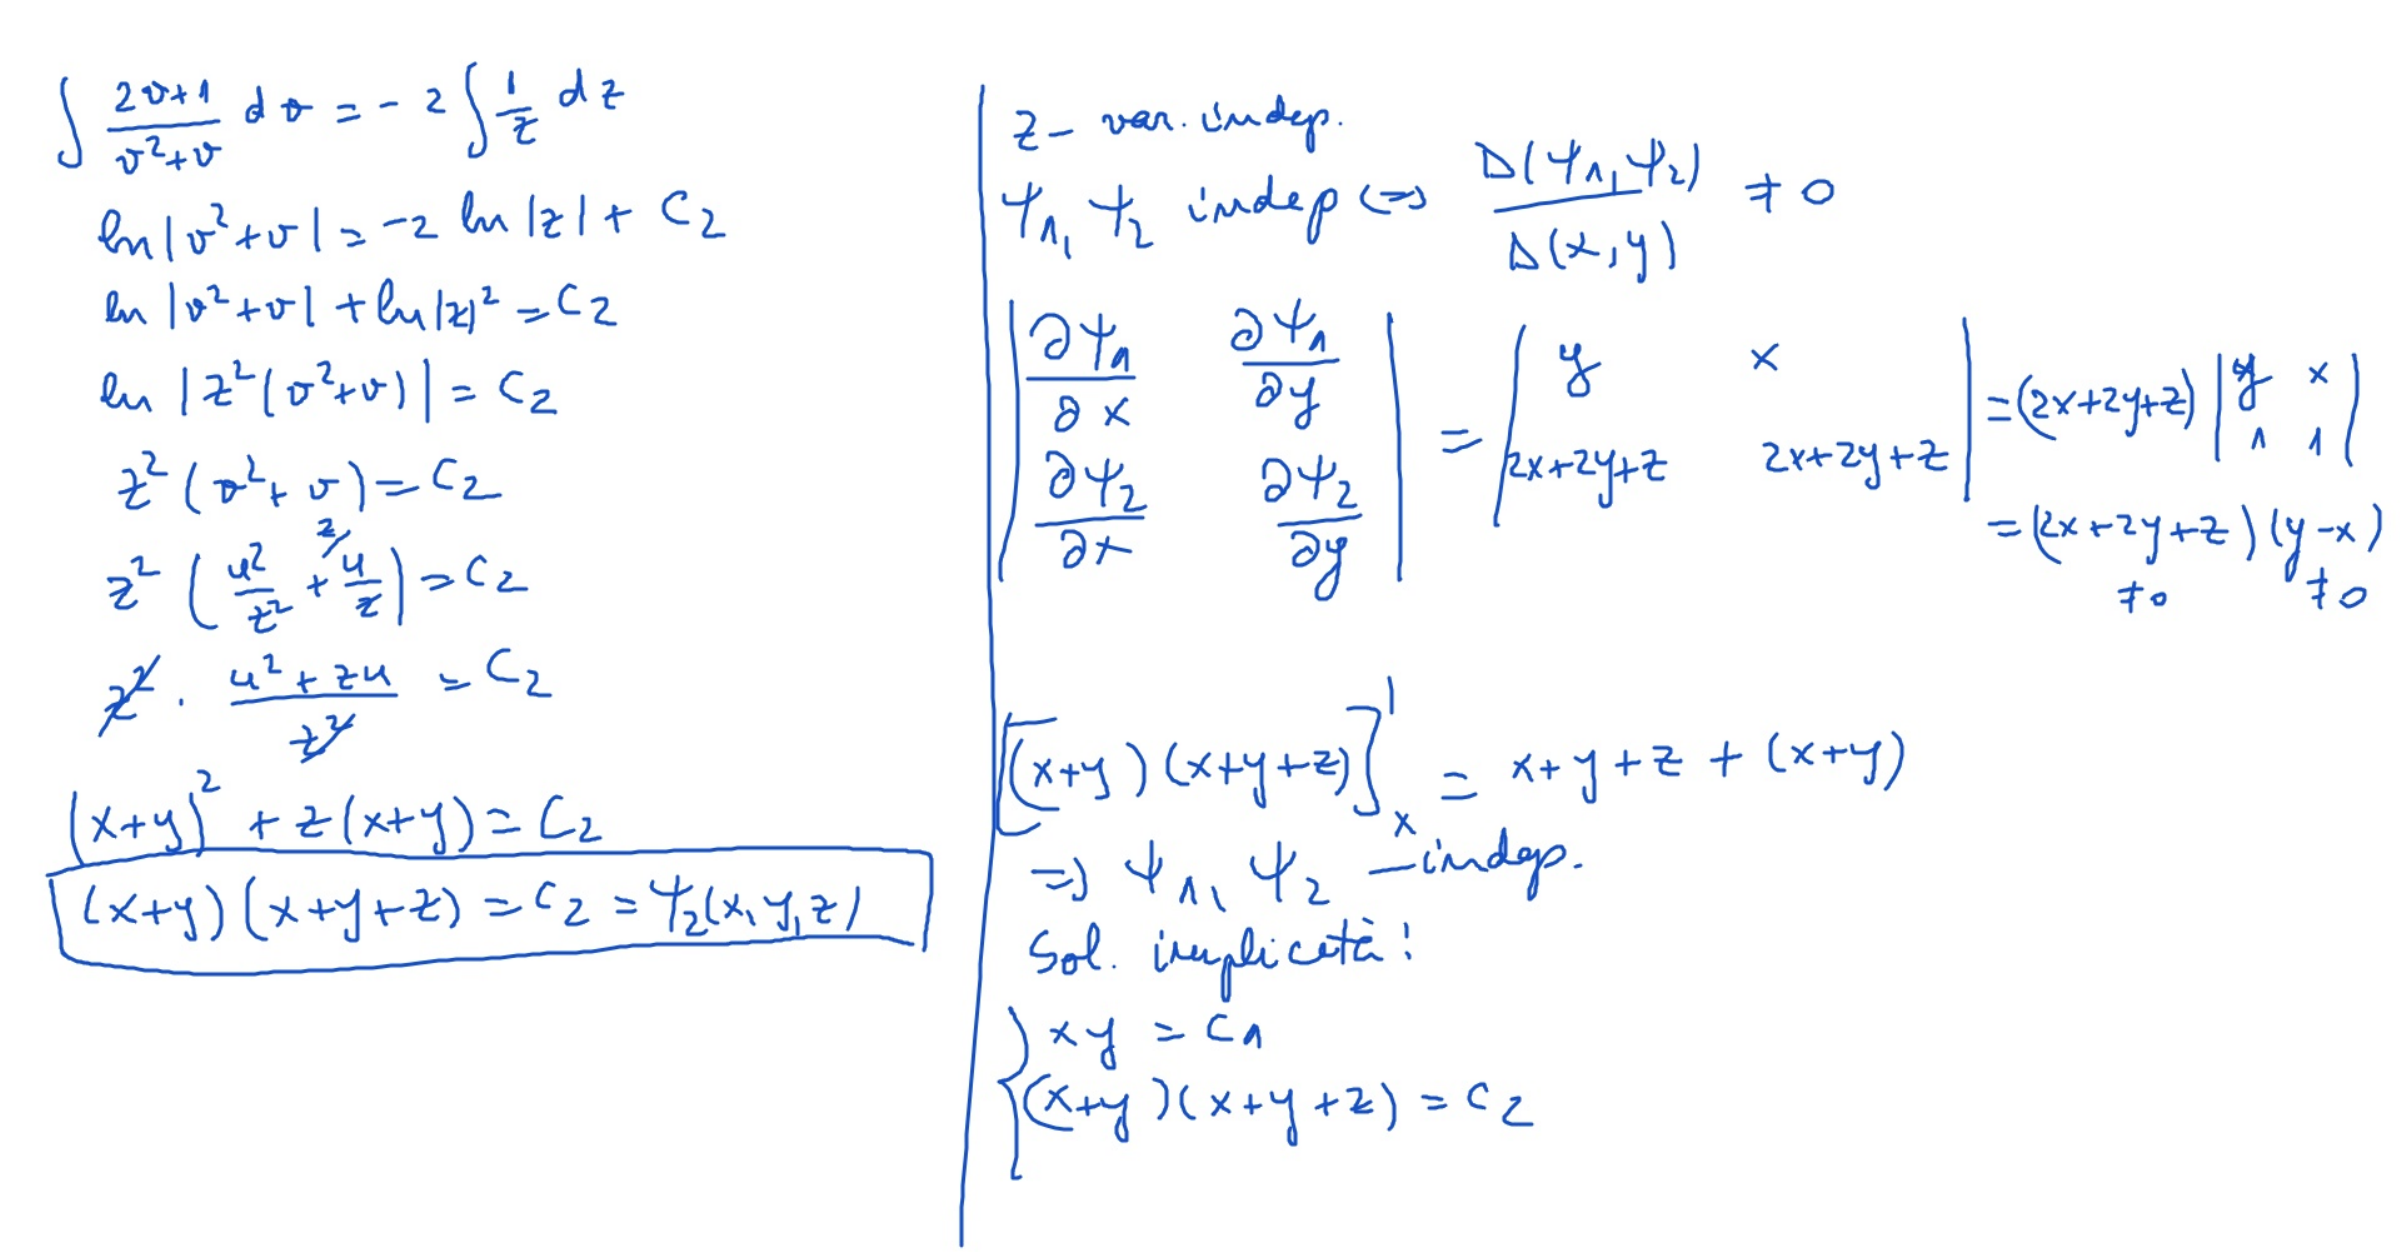 ∫ (2v+1)/(v²+v) dv = -2 ∫ 1/z dz
ln|v²+v| = -2 ln|z| + C₂
ln|v²+v| + ln|z|² = C₂
ln|z²(v²+v)| = C₂
z²(v²+v) = C₂
z²(u²/z² + ᶻ⁄u/z) = C₂
z² · (u²+zu)/z² = C₂
(x+y)² + z(x+y) = C₂
(x+y)(x+y+z) = C₂ = Ψ₂(x,y,z)
z - var. indep.
Ψ₁, Ψ₂ indep <=> D(Ψ₁,Ψ₂)/D(x,y) ≠ 0
|∂Ψ₁/∂x ∂Ψ₁/∂y; ∂Ψ₂/∂x ∂Ψ₂/∂y| = |y x; 2x+2y+z 2x+2y+z| = (2x+2y+z) |y x; 1 1|
= (2x+2y+z)(y-x)
≠0 ≠0
[(x+y)(x+y+z)]'ₓ = x+y+z + (x+y)
=> Ψ₁, Ψ₂ - indep.
Sol. implicită:
{ xy = C₁
(x+y)(x+y+z) = C₂